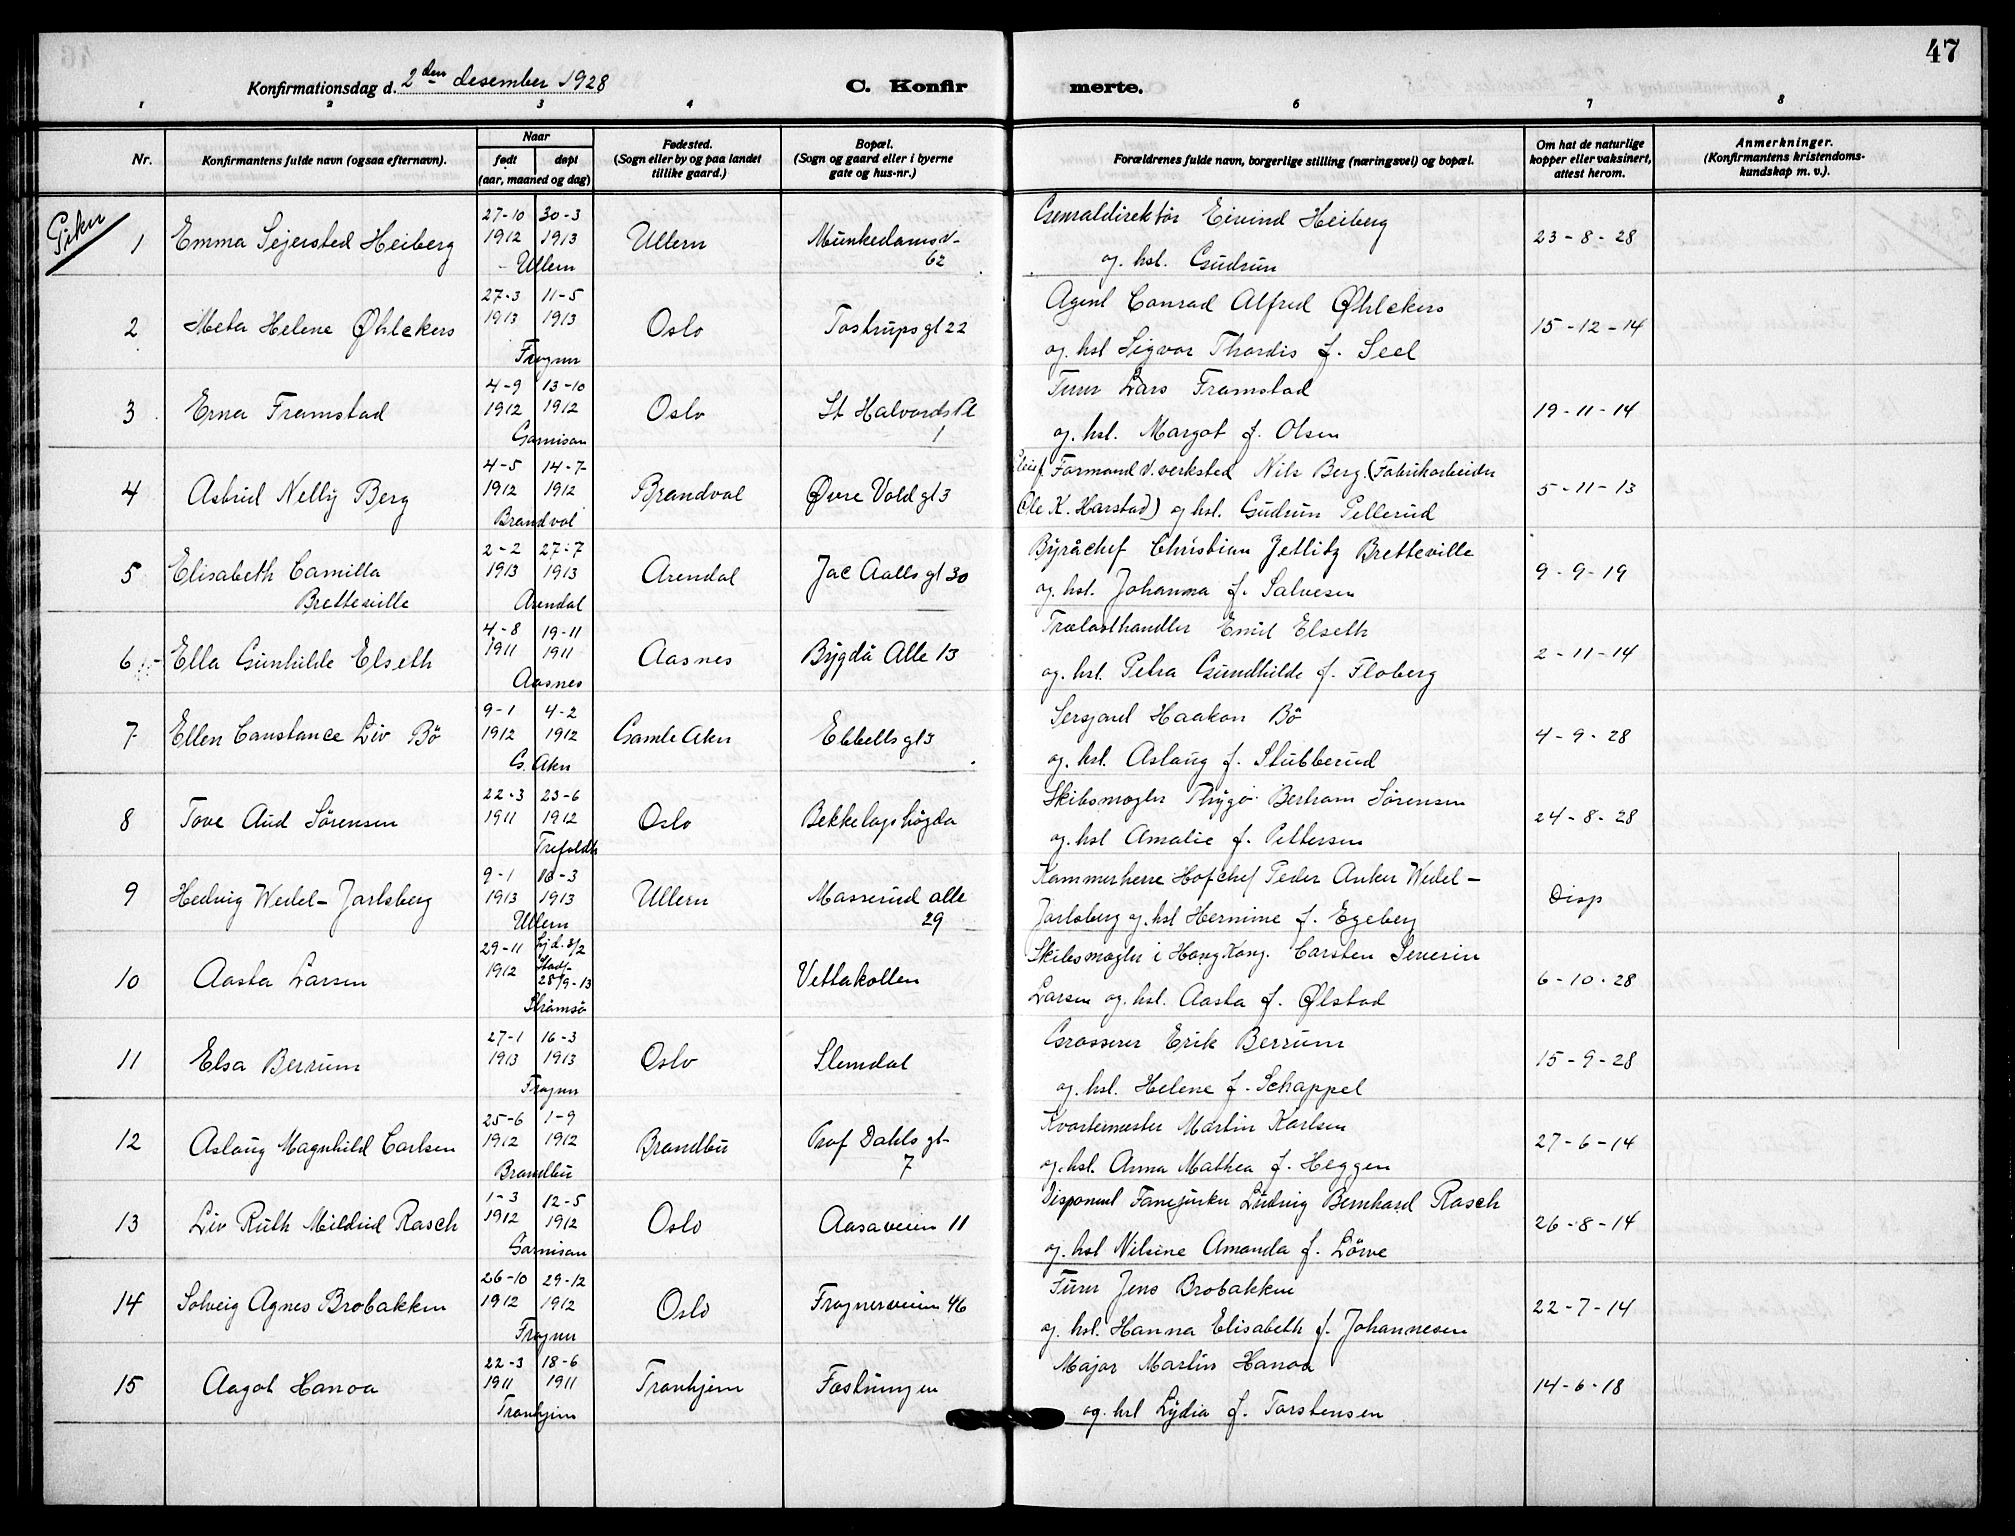 47
Konfirmationsdag d. 2den desember 1928
C. Konfir merte.
1 2 3 4 6 7 8
Nr.
Konfirmantens fulde navn (ogsaa efternavn).
Naar
født døpt
(aar, maaned og dag)
Fødested.
(Sogn eller by og paa landet
tillike gaard.)
Bopæl.
(Sogn og gaard eller i byerne
gate og hus-nr.)
Forældrenes fulde navn, borgerlige stilling (næringsvei) og bopæl.
Om hat de naturlige
kopper eller vaksinert,
attest herom.
Anmerkninger.
(Konfirmantens kristendoms-
kundskap m. v.).
Piker
1 Emma Sejersted Heiberg 27-10 1912 30-3 1913 Ullern Ullern Munkedamsv- 62 Generaldirektör Eivind Heiberg
og. hst. Gudrun 23-8-28
2 Meta Helene Øhlckers 27-3 1913 11-5 1913 Frogner Oslo Tostrupsgt 22 Agent Conrad Alfred Øhlckers
og. hst Sigvor Thordis f. Seel 15-12-14
3 Erna Framstad 4-9 1912 13-10 1912 Garnison Oslo St Halvards Pl 1 Furer Lars Framstad
og. hst. Margot f. Olsen 19-11-14
4 Astrid Nelly Berg 4-5 1912 14-7 1912 Brandval Brandval Øvre Vold gt 3 Pleief. Formand v. verksted Nils Berg (Fabrikarbeider
Ole K. Harstad) og hst. Gudrun Pellerud 5-11-13
5 Elisabeth Camilla
Bretteville 2-2 1913 27-7 1913 Arendal Arendal Jac Aalls gt 30 Byråchef Christian Zetlitz Bretteville
og. hst. Johanna f. Salvesen 9-9-19
6 Ella Gunhilde Elseth 4-8 1911 19-11 1911 Aasnes Aasnes Bygdö Alle 13 Trælasthandler Emil Elseth
og. hst. Petra Gundhilde f. Floberg 2-11-14
7 Ellen Constance Liv Bö 9-1 1912 4-2 1912 G. Aker Gamle Aker Ebbells gt 3 Sersjant Haakon Bö
og. hst. Aslaug f. Stubberud 4-9-28
8 Tove Aud Sörensen 22-3 1911 23-6 1912 Trefoldh Oslo Bekkelagshögda Skibsmægler Thygo Bertram Sörensen
og. hst Amalie f. Pettersen 24-8-28
9 Hedvig Wedel-Jarlsberg 9-1 1913 16-3 1913 Ullern Ullern Masserud alle 29 Kammerherre Hofchef Peder Anker Wedel-
Jarlsberg og. hst Hermine f. Egeberg Disp
10 Aasta Larsen 29-11 1912 Hj.d. 8/2 Stadf. 28/9-13 Strømsö Vettakollen Skibsmægler i Hong Kong. Carsten Severin
Larsen og. hst. Aasta f. Ølstad 6-10-28
11 Elsa Berrum 27-1 1913 16-3 1913 Frogner Oslo Slemdal Grosserer Erik Berrum
og. hst. Helene f. Schappel 15-9-28
12 Aslaug Magnhild Carlsen 25-6 1912 1-9 1912 Brandbu Brandbu Prof Dahls gt- 7 Kvartermester Martin Karlsen
og. hst. Anna Mathea f. Heggen 27-6-14
13 Liv Ruth Mildrid Rasch 1-3 1912 12-5 1912 Garnison Oslo Aasaveien 11 Disponent Fanejunker Ludvig Bernhard Rasch
og. hst Nilsine Amanda f. Löwe 26-8-14
14 Solveig Agnes Brobakken 26-10 1912 29-12 1912 Frogner Oslo Frognerveien 46 Furer Jens Brobakken
og. hst. Hanna Elisabeth f. Johannesen 22-7-14
15 Aagot Hanoa 22-3 1911 18-6 1911 Tronhjem Tronhjem Fæstningen Major Martin Hanoa
og. hst Lydia f. Torstensen 14-6-18